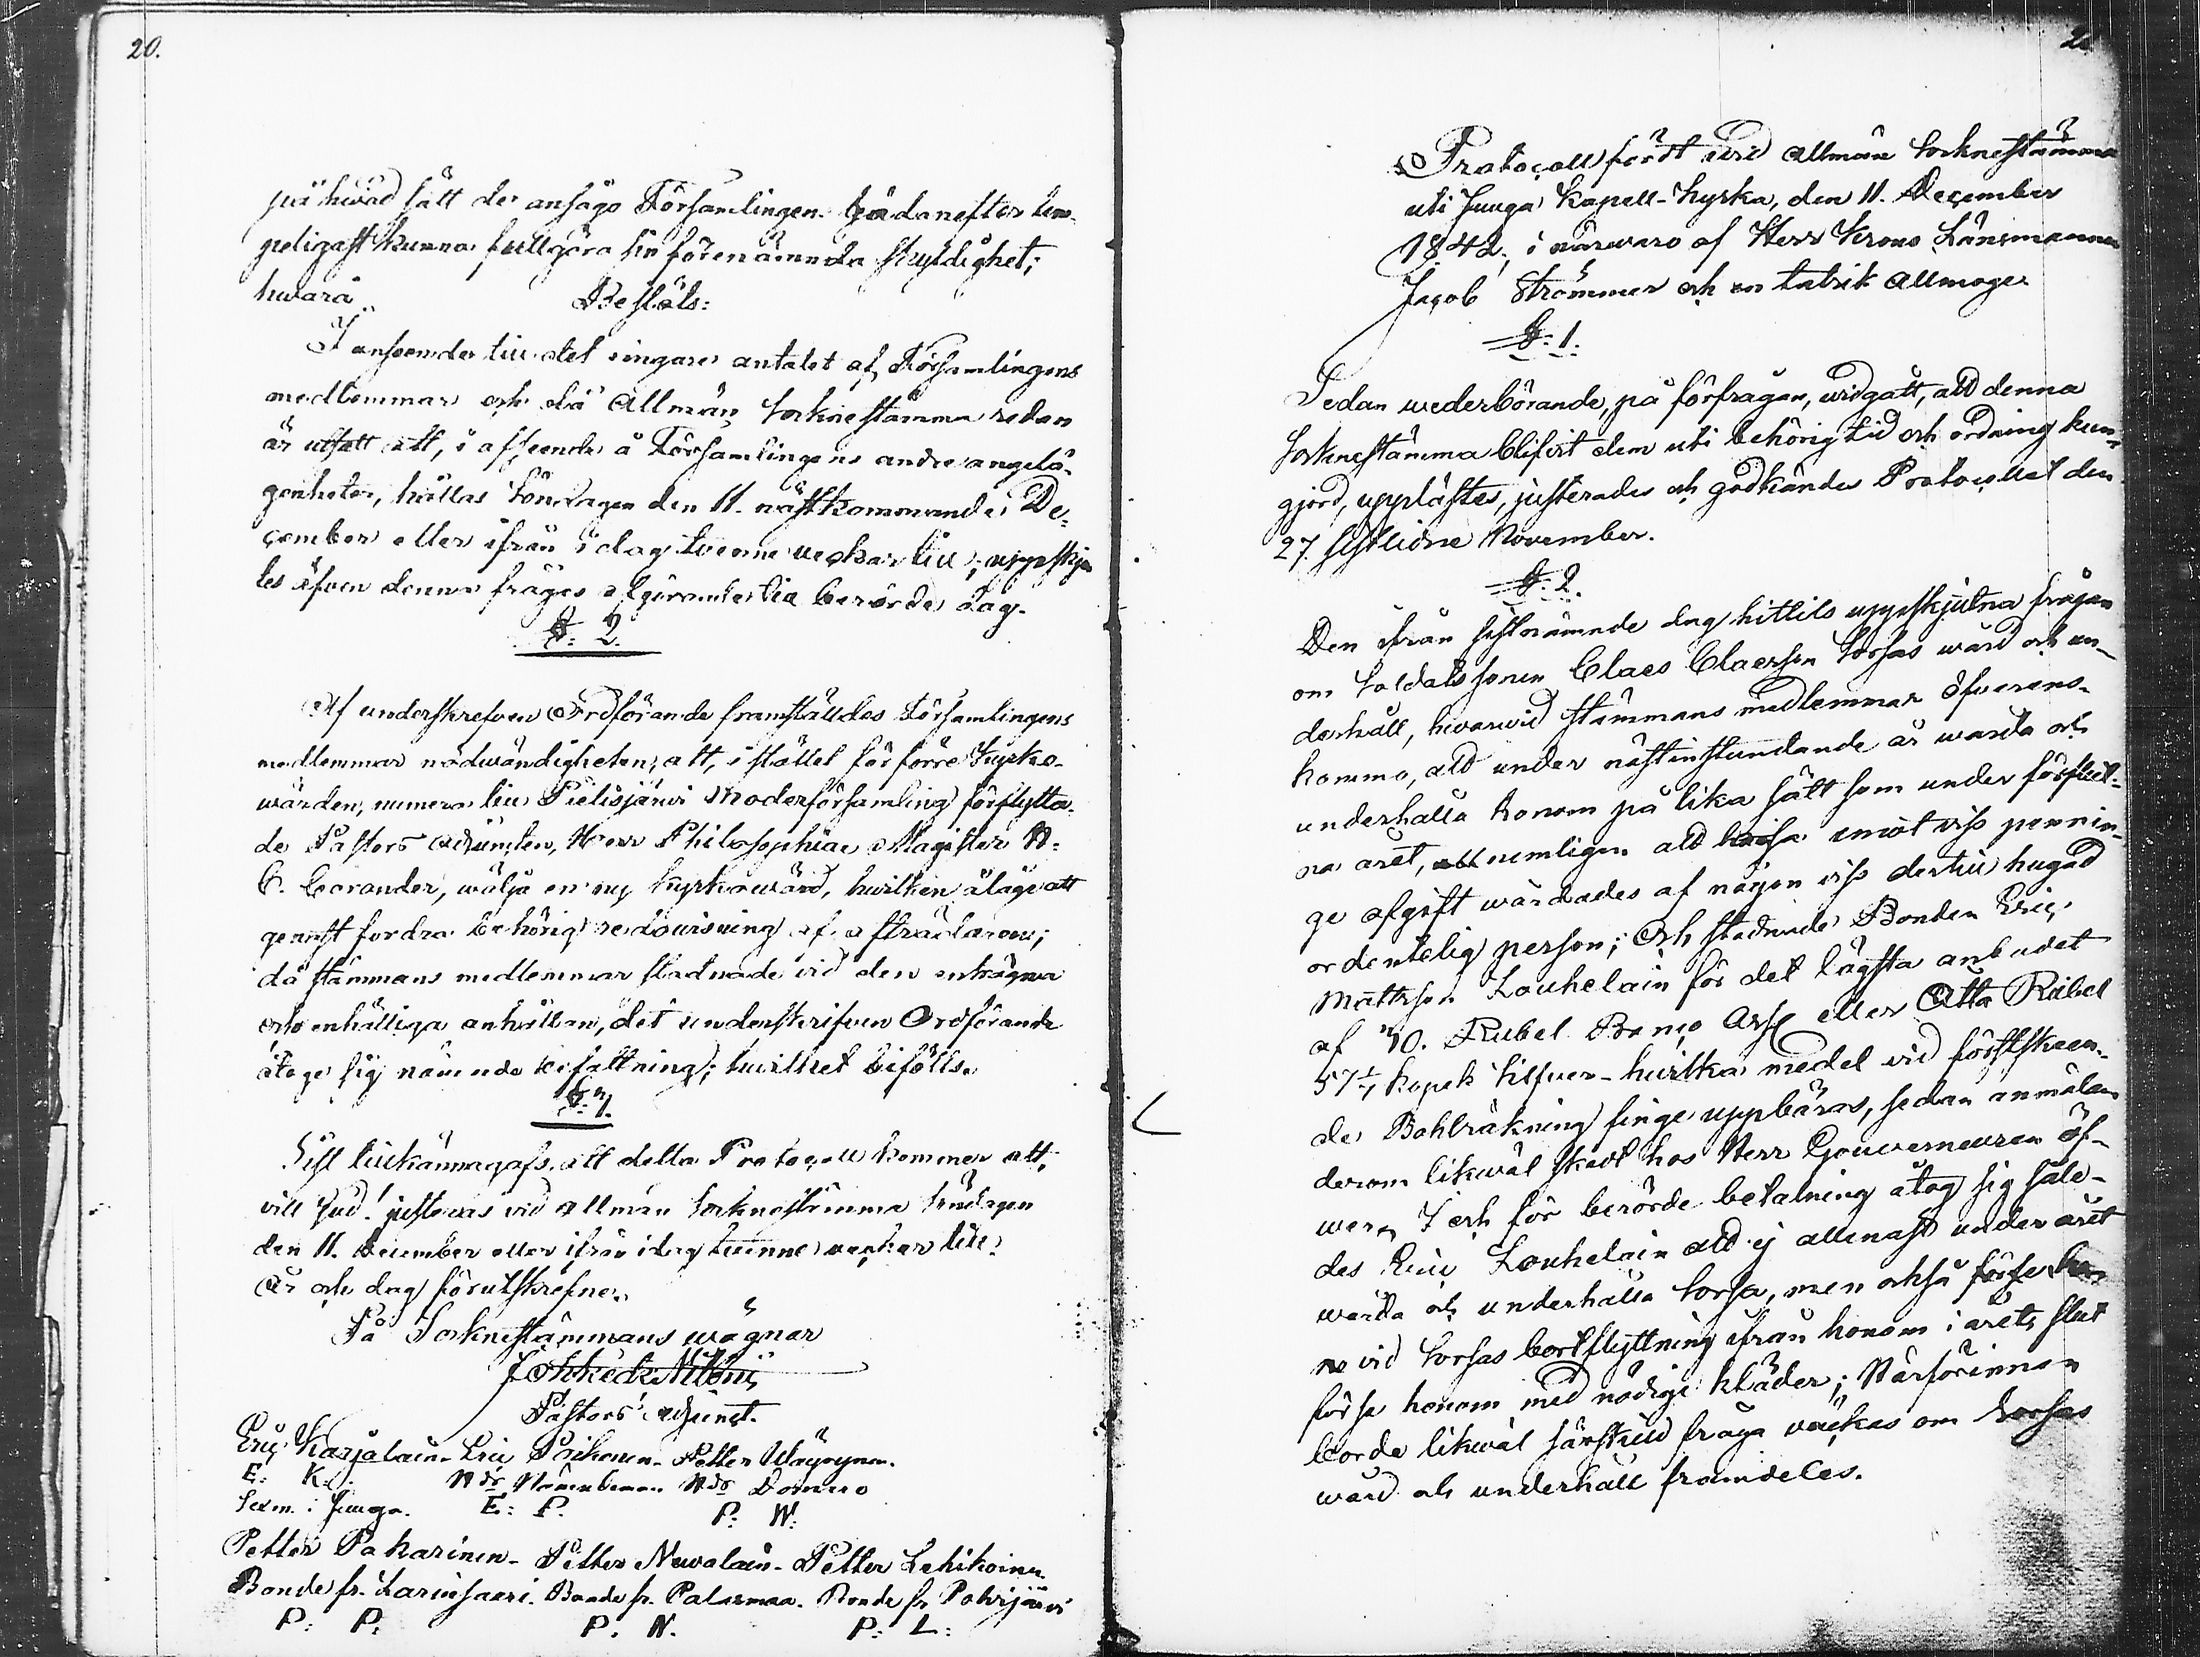 20.
på hvad sätt de ansågo Församlingen hädanefter läm-
peligast kunna fullgöra sin förenämnda skyldighet;
hwarå
Beslöts:
I anseende till det ringare antalet af Församlingens
medlemmar och då Allmän Socknestämma redan
är utsatt att, i afseende å Församlingens andre angelä-
genheter, hållas Söndagen den 11. nästkommande De-
cember eller ifrån i dag tvenne veckor till; uppskjö
les äfven denna frågas afgörande till berörde dag.
§. 2.
Af underskrefven Ordförande framställdes Församlingens
medlemmar nödwändigheten, att, i stället för förre Kyrko-
wärden, numera till Pielisjärvi Moderförsamling förflytta-
de Pastors Adjuncten, Herr Philosophiae Magister N.
C. Corander, wälja en ny Kyrkowärd, hvilken ålåge att
genast fordra behörig redowisning af afträdaren;
då stämmans medlemmar stadnade vid den enträgna
och enhälliga anhållan, det underskrifven Ordförande
åtoge sig nämnde befattning; hvilket biföllse
§. 3.
Sist tillkännagafs att detta Protocoll kommer att,
vill Gud! justeras vid allmän Sockenstämma Söndagen
den 11. December eller ifrån idag tvenne veckor till.
År och dag förutskrefne.
På Socknestämmans wägnar
Pastors Adjunct.
Eric Karjalain - Eric Poikonen - Petter Wäyrynen.
E: K: Ndr Nämndeman Ndr Domare
Sexm. i Juuga. E: P. P: W:
Petter Pakarinen - Petter Newalain - Petter Lehikoinen
Bonde fr. Larinsaari. Bonde fr. Palosmaa. Bonde fr. Polvijärvi
P: P. P. N. P: L:
Protocoll fördt wid allmän Socknestämma
uti Juuga Kapell-Kyrka, den 11. December
1842, i närwaro af Herr Krono Länsmannen
Jacob Strömmer och en talrik Allmoge.
§. 1.
Sedan wederbörande, på förfrågan, widgått, att denna
Socknestämma blifvit dem uti behörig tid och ordning kun-
gjord, upplästes, justerades och godkändes Protocollet den
27. sistlidne November.
§. 2.
Den ifrån sistnämnde dag hittils uppskjutna frågan
om Soldatssonen Claes Claesson Sorsas wård och un-
derhåll, hwarvid stämmans medlemmar öfverens-
kommo, att under nästinstundande år warda och
underhålla honom på lika sätt som under förflut-
na året, nemligen att emot viss pennin-
ge afgift wårdades af någon viss dertill hugad
ordentelig person; Och stadnade Bonden Eric
Mattsson Louhelain för det lägsta anbudet
af 30. Rubel Banco Ass eller Åtta Rubel
57 1/7 Kopek Silfver - hvilka medel vid förstskeen-
de Bohlräkning finge uppbäras, sedan anmälan
derom likwäl skedt hos Herr Gouverneuren öf-
wer, och för berörde betalning åtog sig såle-
des Eric Louhelain att ej allenast under året
warda och underhålla Sorsa, men också
vid Sorsas bortflyttning ifrån honom i årets slut
förse honom med nödige kläder; Närförinnan
borde likwäl särskild fråga väckas om Sorsas
wård och underhåll framdeles.